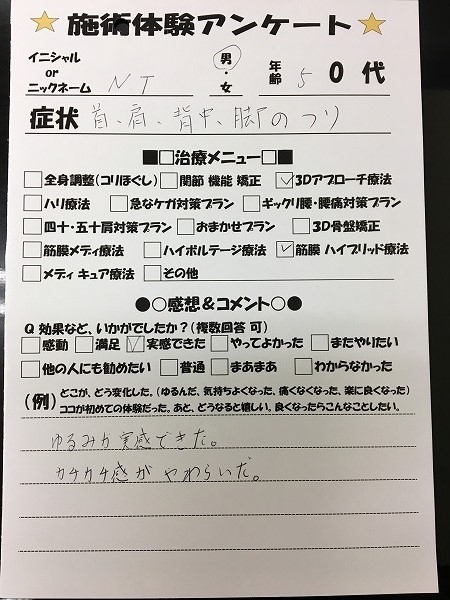 ★施術体験アンケート★
イニシャル
or
ニックネーム NT 男・女 年齢 50代
症状 首、肩、背中、脚のつり
■□治療メニュー□■
□全身調整(コリほぐし) □関節 機能 矯正 ☑3Dアプローチ療法
□ハリ療法 □急なケガ対策プラン □ギックリ腰・腰痛対策プラン
□四十・五十肩対策プラン □おまかせプラン □3D骨盤矯正
□筋膜メディ療法 □ハイボルテージ療法 ☑筋膜 ハイブリッド療法
□メディ キュア療法 □その他
●○感想&コメント○●
Q 効果など、いかがでしたか?(複数回答 可)
□感動 □満足 ☑実感できた □やってよかった □またやりたい
□他の人にも勧めたい □普通 □まあまあ □わからなかった
(例) どこが、どう変化した。(ゆるんだ、気持ちよくなった、痛くなくなった、楽に良くなった)
ココが初めての体験だった。あと、どうなると嬉しい。良くなったらこんなことしたい。
ゆるみが実感できた。
カチカチ感がやわらいだ。